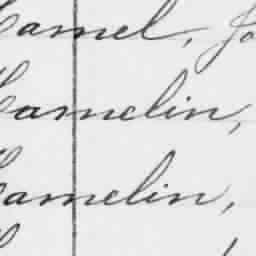 Hamel, Jo
Hamelin,
Hamelin,